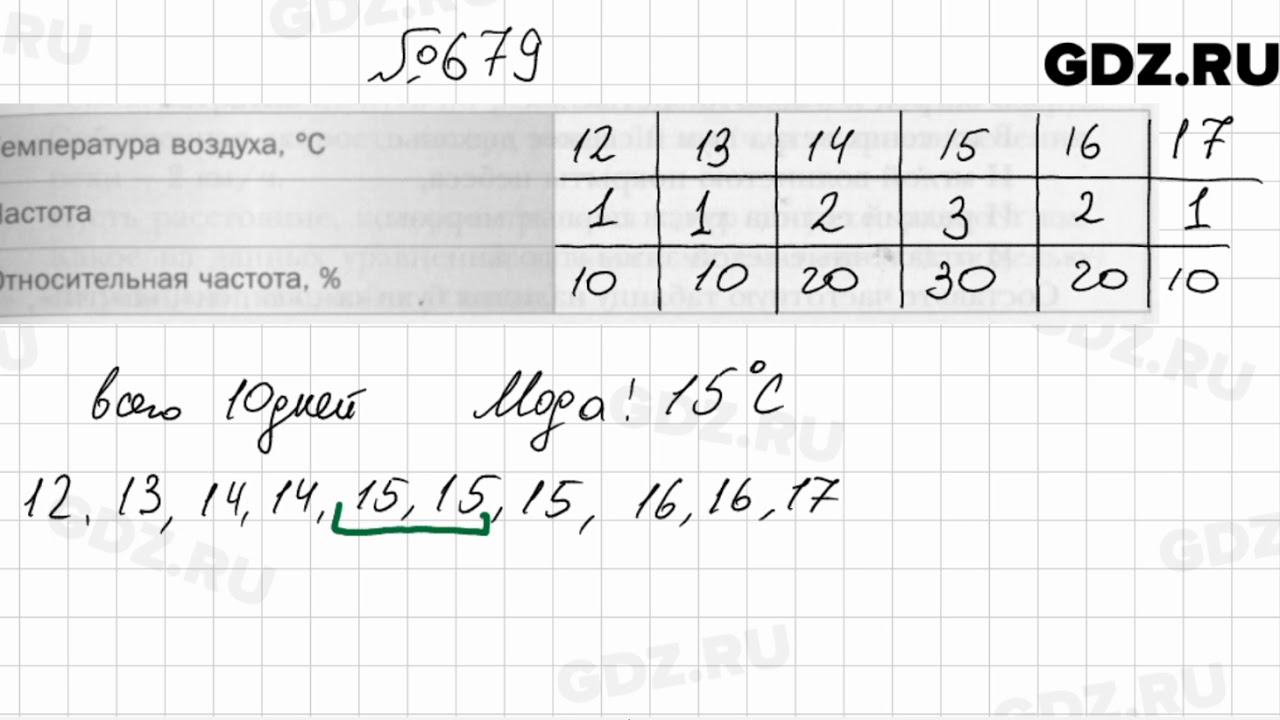 №679
GDZ.RU
Температура воздуха, °C 12 13 14 15 16 17
Частота 1 1 2 3 2 1
Относительная частота, % 10 10 20 30 20 10
всего 10 дней Мода: 15°C
12, 13, 14, 14, 15, 15, 15, 16, 16, 17